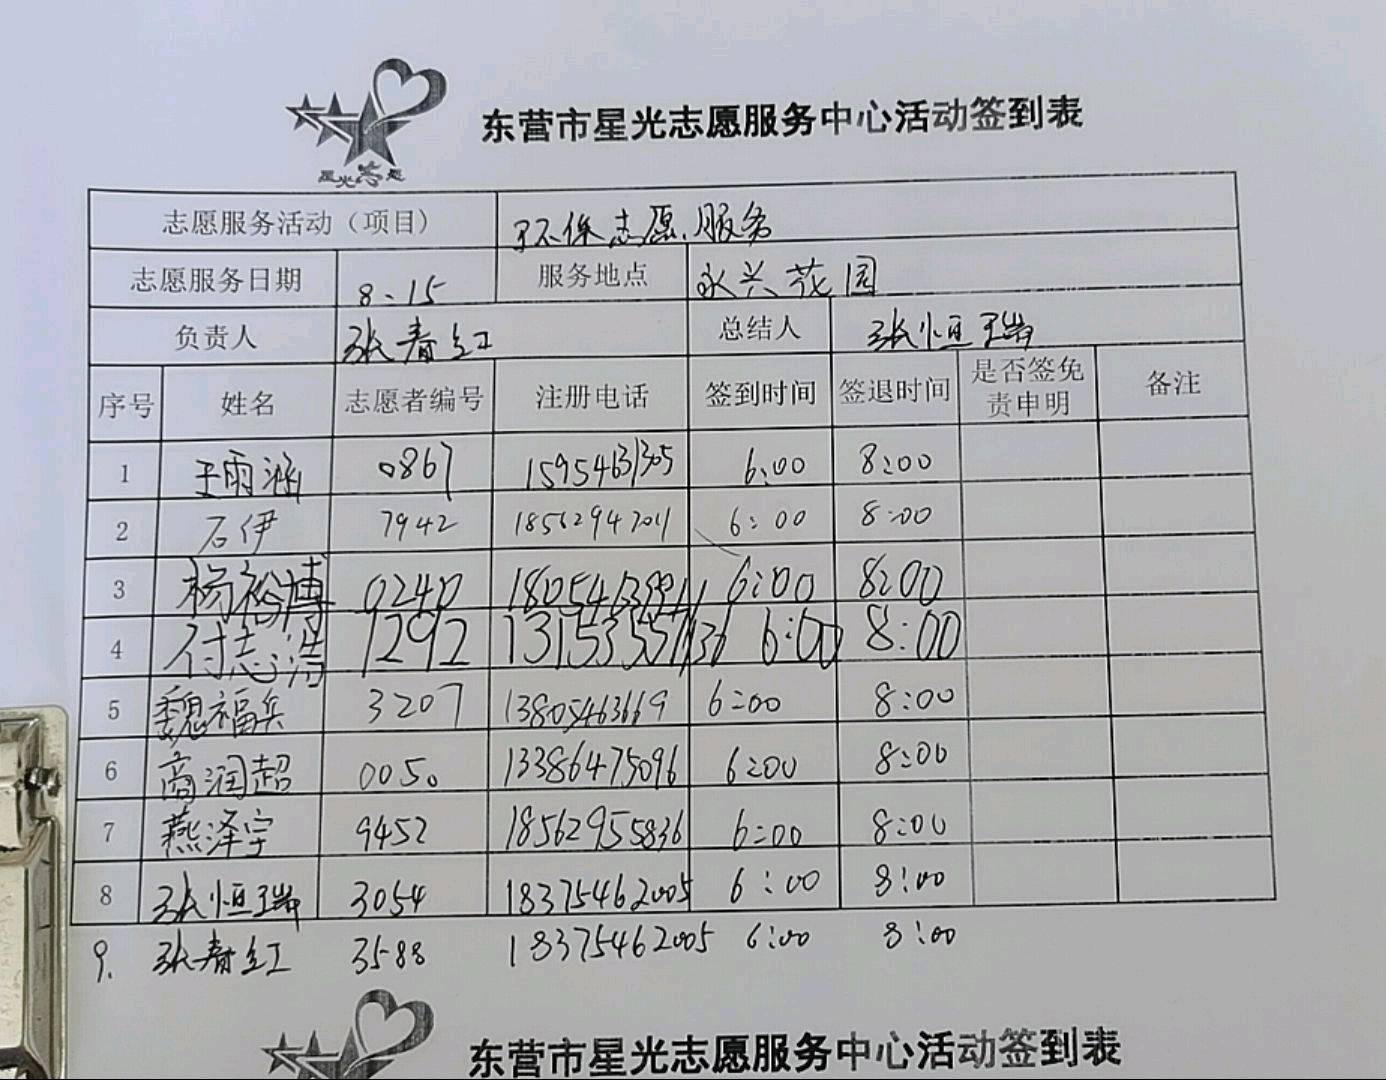 星光志愿
东营市星光志愿服务中心活动签到表
志愿服务活动（项目） 环保志愿服务
志愿服务日期 8.15 服务地点 永兴花园
负责人 张春红 总结人 张恒瑞
序号 姓名 志愿者编号 注册电话 签到时间 签退时间 是否签免责申明 备注
1 王雨涵 0867 15954631305 6:00 8:00
2 石伊 7942 18562942011 6:00 8:00
3 杨裕博 0240 6:00 8:00
4 付志浩 1292 6:00 8:00
5 魏福兵 3207 13805463669 6:00 8:00
6 商润超 0050 13386475096 6:00 8:00
7 燕泽宇 9452 18562955836 6:00 8:00
8 张恒瑞 3054 18375462005 6:00 8:00
9. 张春红 3588 18375462005 6:00 8:00
东营市星光志愿服务中心活动签到表